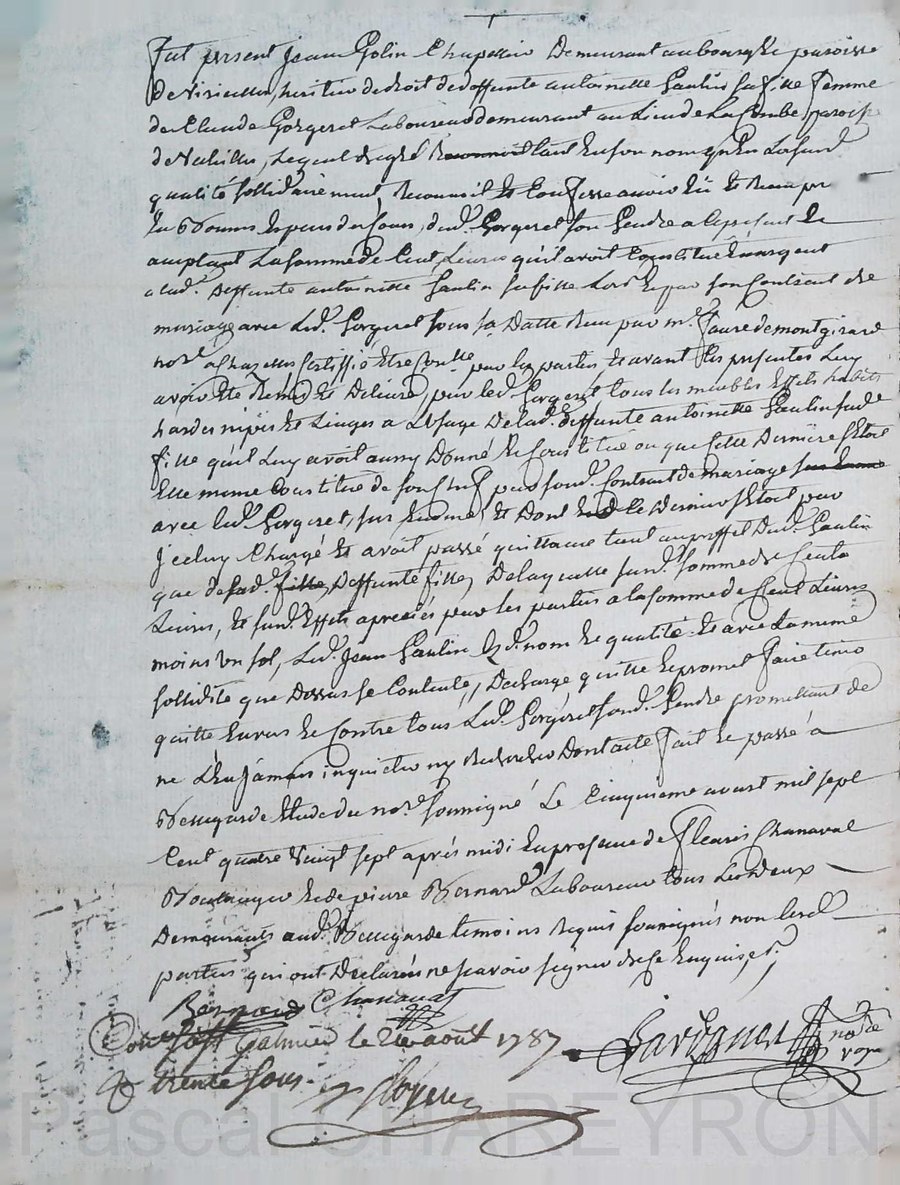 Fut present Jean Golin Chapellier Demeurant au bourg & paroisse
de Viricelles, heritier de droit de deffunte antoinette Gaulin sa fille femme
de Claude Gorgeret Laboureur demeurant au Lieu de La Combe, paroisse
de gré tant En son nom qu'En La susd.
qualité sollidairement Reconnoit Et Confesse avoir Eû Et Reçu
En Bonnes Especes de Cours, dud. Gorgeret son Gendre a Ce présent Et
acceptant La somme de Cent Livres qu'il avoit Constitué En argent
a lad. deffunte antoinette Gaulin sa fille Lors Et par son Contrant de
mariage avec Led. Gorgeret sous sa Datte Reçu par me. faure de montgirard
nore. a Chazelles par Les parties, Et avant Les presentes Luy
avoir Eté Remis Et Délivré, par led. Gorgeret tous les meubles Effets habits
hardes nipes Et Linges a L'usage De lad. deffunte antoinette Gaulin sad.
fille qu'il Luy avoit aussy Donné Et Constitué ou que Cette Dernière s'Etoit
Elle même Constitué de son Chef par sond. Contrant de mariage
avec led. Gorgeret, Et Dont Ce Dernier s'Etoit par
Jceluy Chargé Et avoit passé quittance tant au proffit Dud. Gaulin
que De sad. fille, Deffunte fille, De laquelle susd. somme de Cents
Livres, Et susd. Effets apreciés par les parties a la somme de Cent Livres
moins un sol, Led. Jean Gaulin Esd. nom Et qualité Et avec La même
sollidité que Dessus se Contente, Decharge quitte Et promet faire tenir
quitte Envers Et Contre tous Led. Gorgeret sond. Gendre promettant de
ne L'En Jamais inquieter ny Rechercher Dont acte fait Et passé à
Bellegarde Etude du nore. soussigné Le Cinquieme aoust mil sept
Cent quatre vingt sept après midi En presence de fleury Chanavat
Boulanger Et de pierre Bernard Laboureur tous Les deux
Demeurants aud. Bellegarde temoins Requis soussignés non lesd.
parties qui ont Declarées ne scavoir signer de Ce Enquises,
Bernard Chanavat
Con. a St Galmier le août 1787
R trente sous.
nore
royal
Pascal CHAREYRON